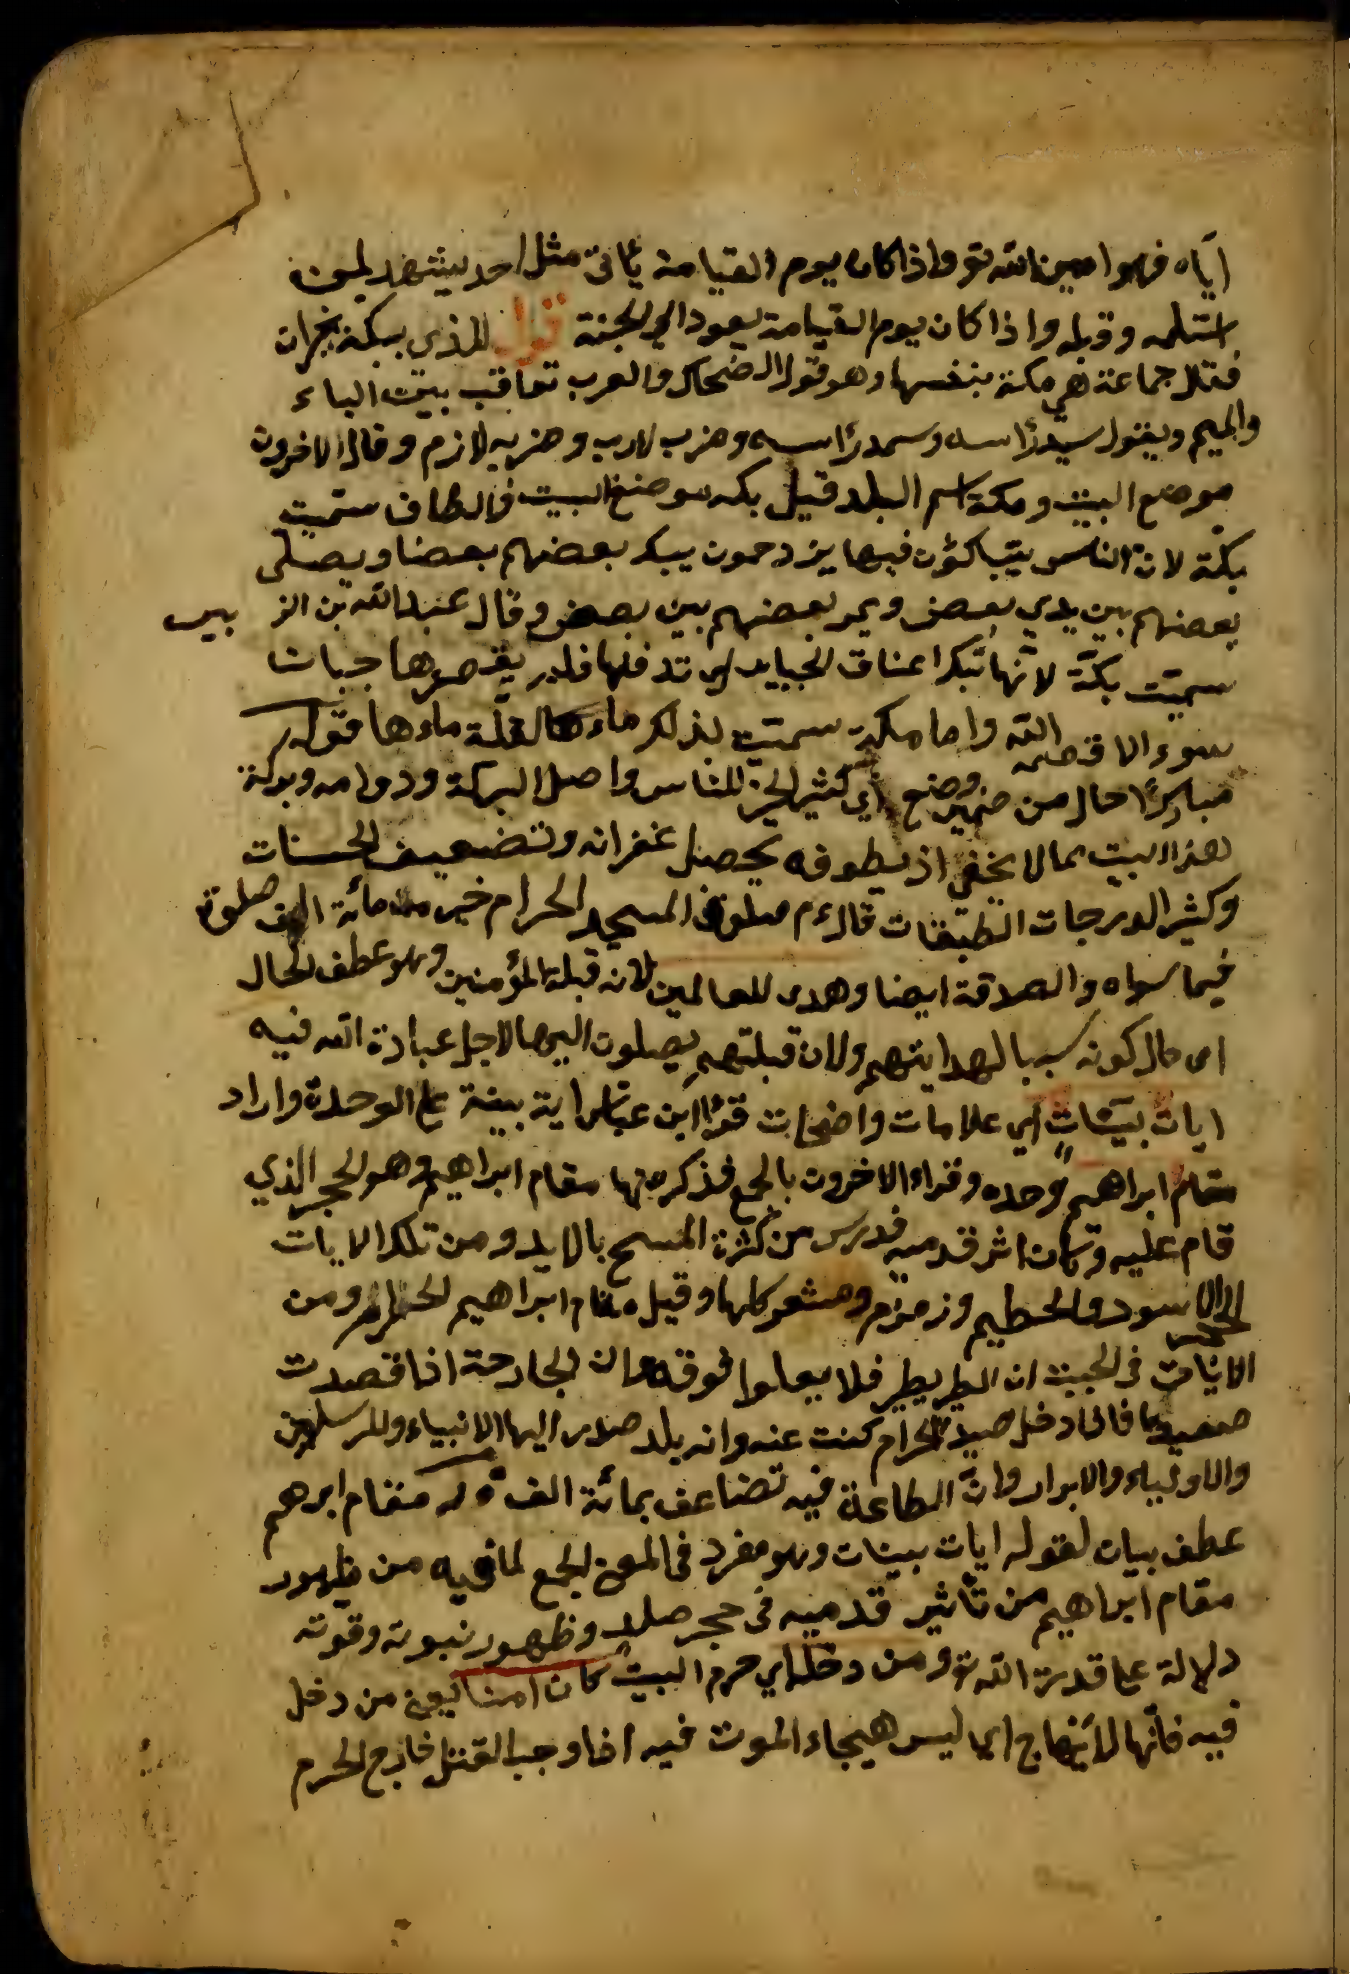 اياه فهو امين الله تع واذا كان يوم القيامة ياتي مثل احد يشهد لمن
استلمه وقبله واذا كان يوم القيامة يعود الى الجنة قوله للذي ببكة
فقال جماعة هي مكة بنفسها وهو قول الضحاك والعرب تعاقب بين الباء
والميم ويقول سبد رأسه وسمد رأسه وضرب لازب وضربه لازم وقال الاخرون
موضع البيت ومكة اسم البلد قيل بكه موضع البيت والمطاف سميت
بكة لان الناس يتباكون فيها يزدحمون يبك بعضهم بعضا ويصلي
بعضهم بين يدي بعض ويمر بعضهم بين بعض وقال عبد الله بن الزبير
سميت بكة لانها تبك اعناق الجبابرة اي تدقها فلم يقصدها جبار
بسوء الا قصمه الله واما مكة سميت بذلك لقلة ماءها قوله
مباركا حال من ضمير وضع اي كثير الخير للناس واصل البركة ودوامه وبركة
هذا البيت مما لا يخفى اذ يطوفه يحصل غفرانه وتضعيف الحسنات
وكثير الدرجات قال ءم صلوة في المسجد الحرام خير من مائة الف صلوة
فيما سواه والصدقة ايضا وهدى للعالمين لانه قبلة المؤمنين وهو عطف الحال
اى حال كونه سببا لهدايتهم ولان قبلتهم يصلون اليها لاجل عبادة الله فيه
ايات بينات اي علامات واضحات قرأ ابن عباس اية بينة على الوحدة واراد
مقام ابراهيم وحده وقراء الاخرون بالجمع فذكر منها مقام ابراهيم وهو الحجر الذي
قام عليه وكان اثر قدميه فدرس من كثرة المسح بالايد ومن تلك الايات
الحجر الاسود والحطيم وزمزم ومشعر كلها وقيل مقام ابراهيم الحرم ومن
الايات في البيت ان الطير يطير فلا يعلوا فوقه وان الجارحة اذا قصدت
صيدها فاذا دخل صيد الحرام كفت عنه وانه بلد صدر اليها الانبياء والمرسلين
والاولياء والابرار وان الطاعة فيه تضاعف بمائة الف قوله مقام ابرهيم
عطف بيان لقوله ايات بينات وهو مفرد في المعنى الجمع لما فيه من ظهور
مقام ابراهيم من تأثير قدميه في حجر صلد وظهور نبوته وقوته
دلالة على قدرة الله تع ومن دخله اي حرم البيت كان امنا يعني من دخل
فيه فانها لا يهاج اي ليس هيجاء الموت فيه اذا وجب القتل خارج الحرم